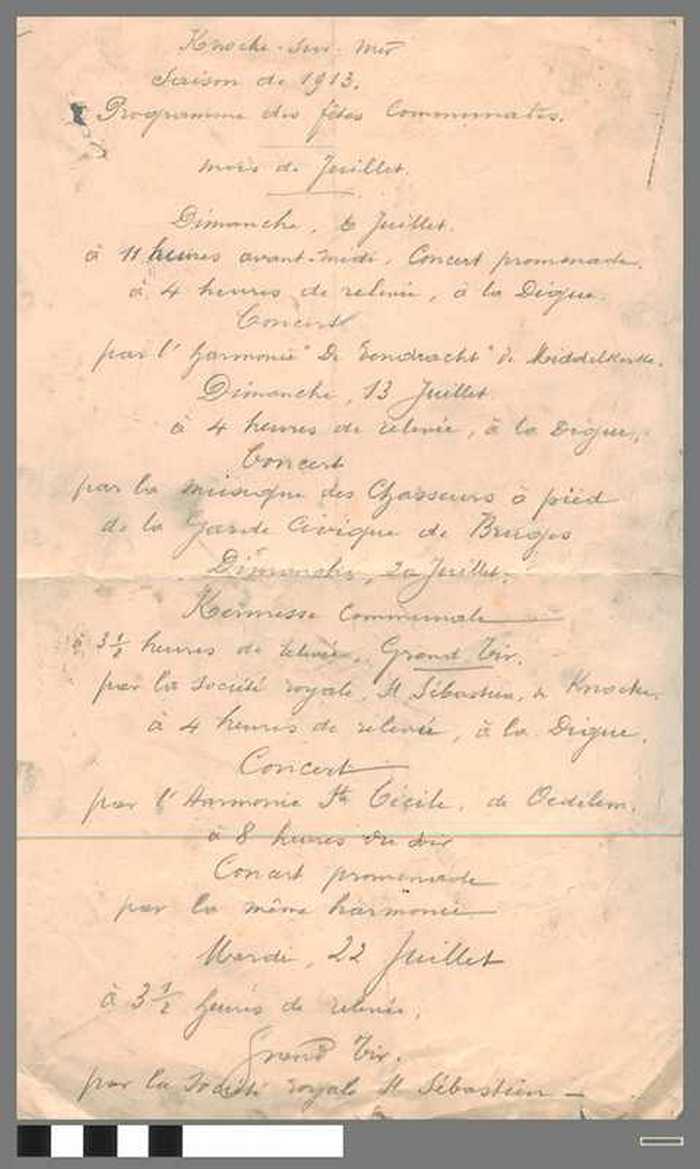 Knocke-sur-mer
Saison de 1913.
Programme des fêtes Communales.
mois de Juillet.
Dimanche, 6 Juillet.
à 11 heures avant-midi, Concert promenade.
à 4 heures de relevée, à la Digue.
Concert
par l'harmonie "De Eendracht" de Middelkerke.
Dimanche, 13 Juillet
à 4 heures de relevée, à la Digue,
Concert
par la musique des Chasseurs à pied
de la Garde Civique de Bruges
Dimanche, 20 Juillet.
Kermesse Communale
à 3 1/2 heures de relevée, Grand Tir.
par la Société royale St Sébastien, de Knocke.
à 4 heures de relevée, à la Digue.
Concert
par l'Harmonie Ste Cécile, de Oedelem.
à 8 heures du soir
Concert promenade
par la même harmonie
Mardi, 22 Juillet
à 3 1/2 heures de relevée,
Grand Tir.
par la Société royale St Sébastien